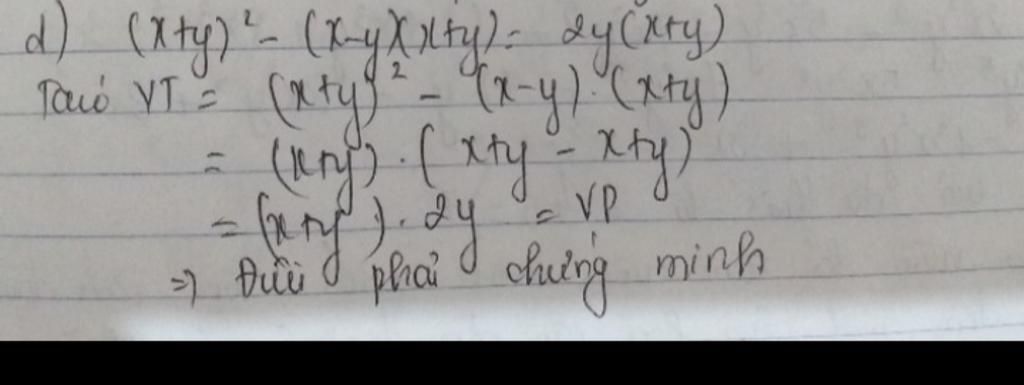 d) (x+y)² - (x-y)(x+y) = 2y(x+y)
Ta có VT = (x+y)² - (x-y).(x+y)
= (x+y).(x+y - x+y)
= (x+y).2y = VP
=> Điều phải chứng minh